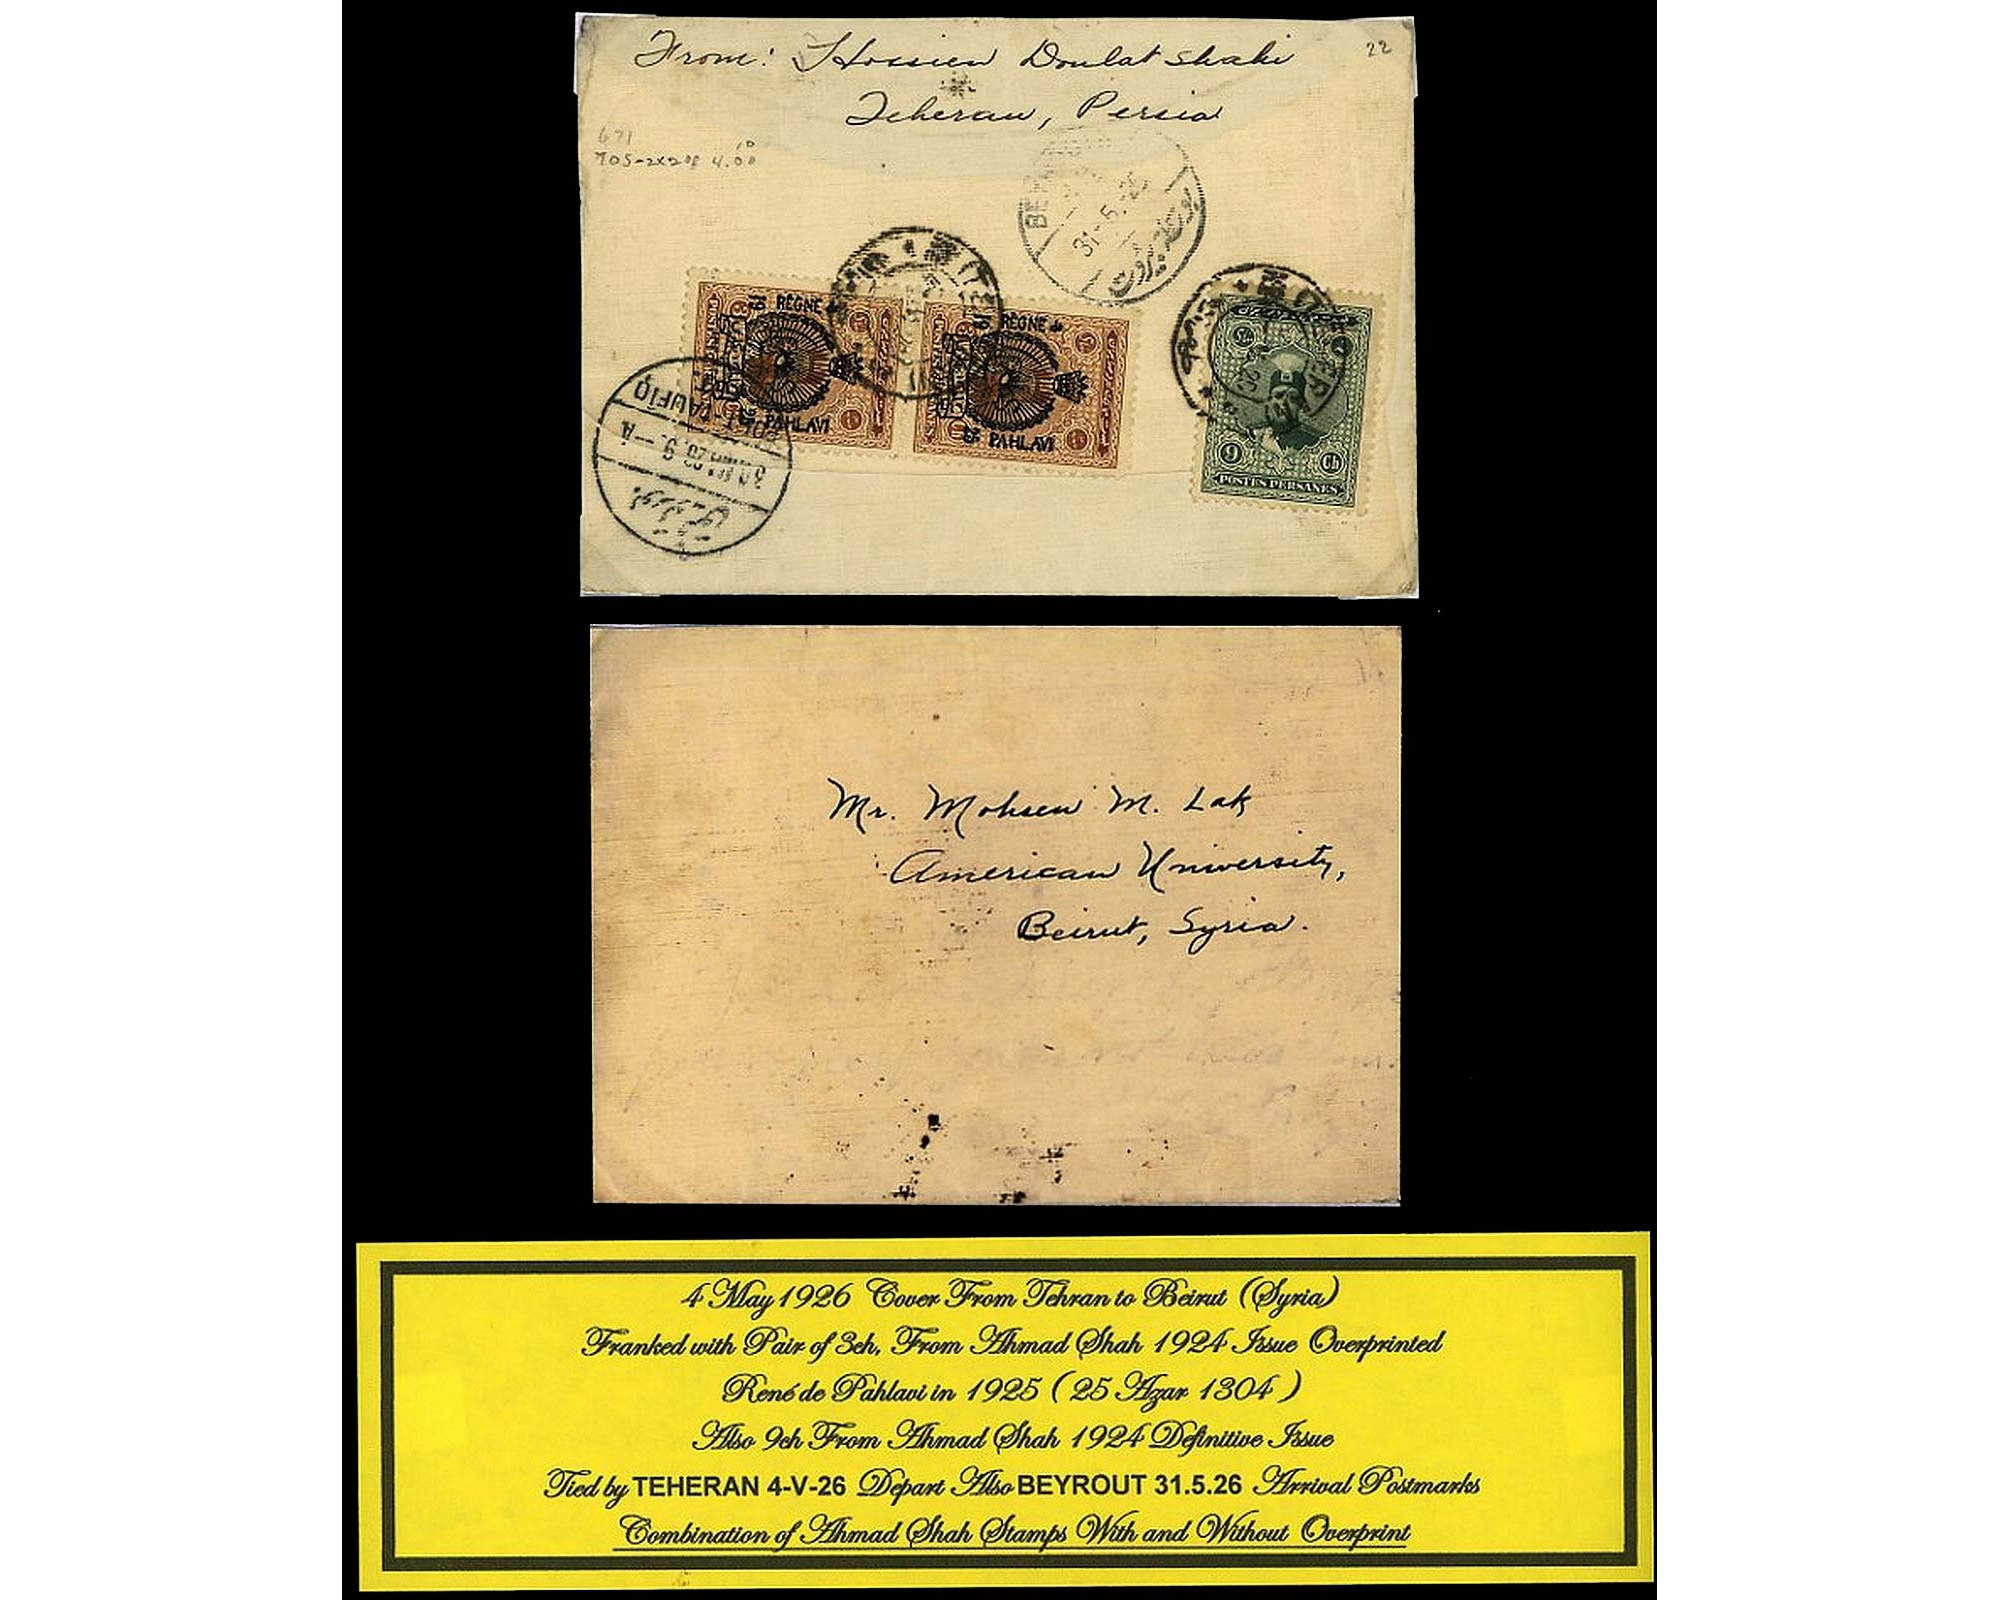 From: Hossien Doulat Shahi
22
Teheran, Persia
671
705-2x20¢ 4.00
10
BE
31-5.26
RÈGNE de
PAHLAVI
RÈGNE de
PAHLAVI
PORT-TAUFIQ
30 MA 26. 9.—A
9 Ch
POSTES PERSANES
Mr. Mohsen M. Lak
American University,
Beirut, Syria.
4 May 1926 Cover From Tehran to Beirut (Syria)
Franked with Pair of 3ch, From Ahmad Shah 1924 Issue Overprinted
René de Pahlavi in 1925 ( 25 Azar 1304 )
Also 9ch From Ahmad Shah 1924 Definitive Issue
Tied by TEHERAN 4-V-26 Depart Also BEYROUT 31.5.26 Arrival Postmarks
Combination of Ahmad Shah Stamps With and Without Overprint